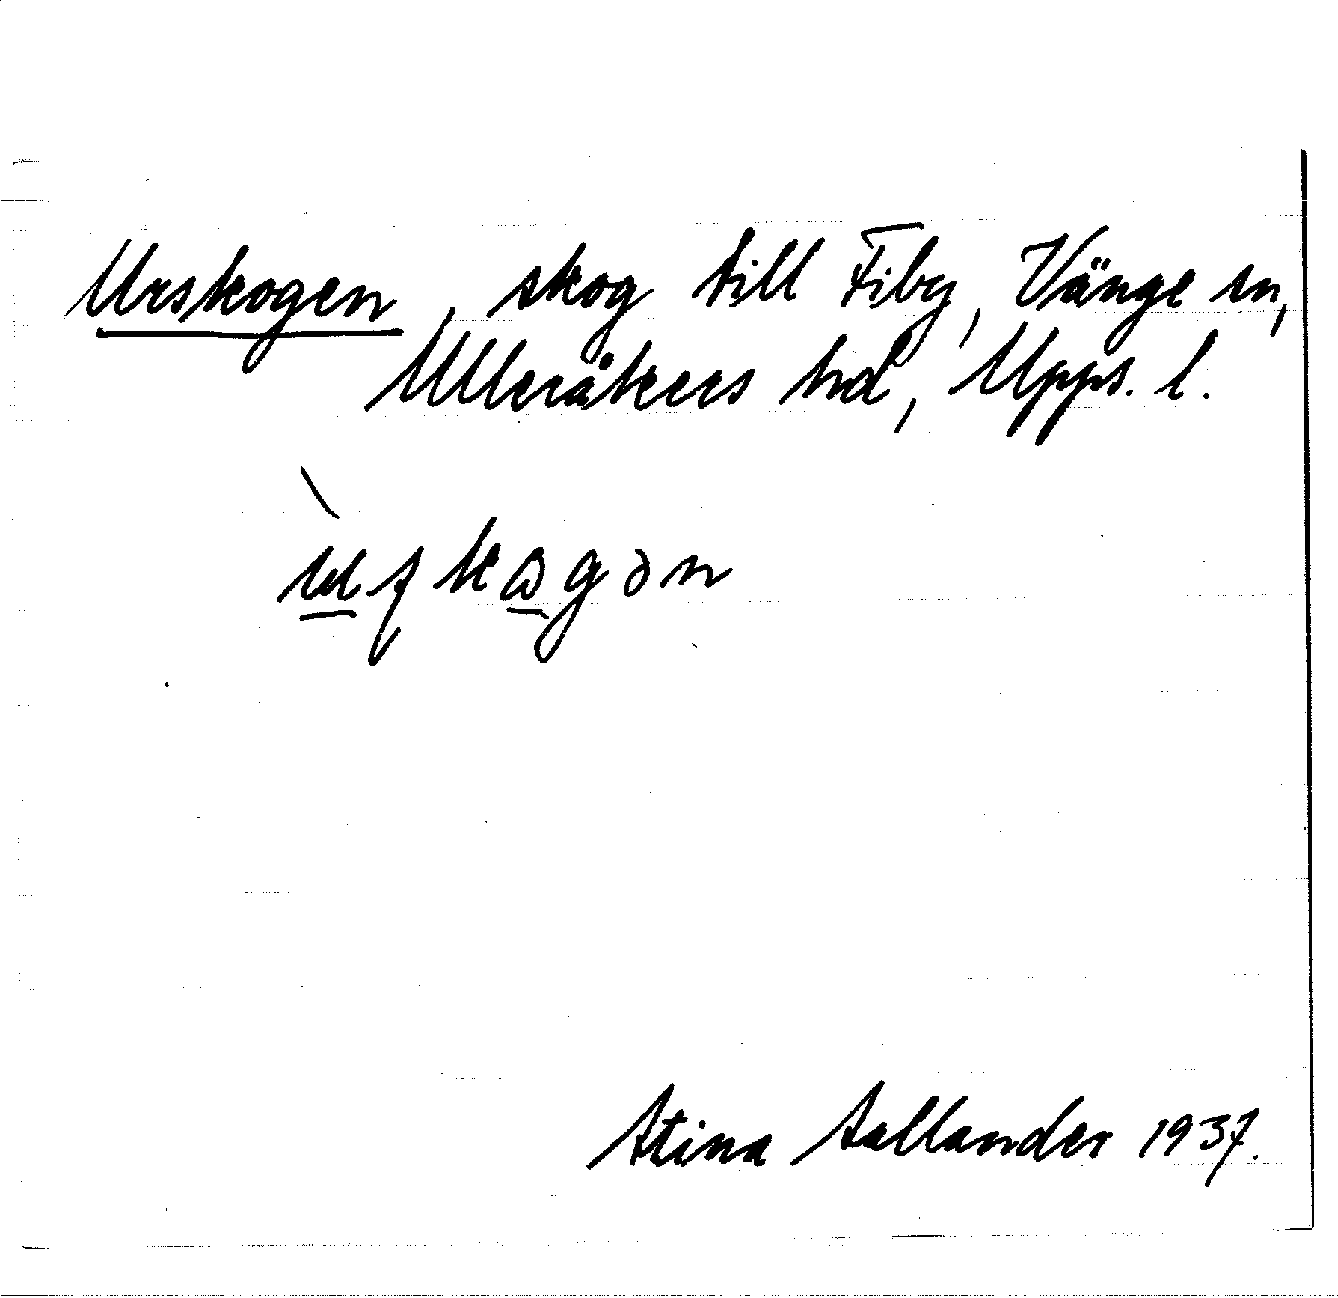 Urskogen, skog till Fiby, Vänge sn,
Ulleråkers hd, Upps. l.
Stina Sallander 1937.